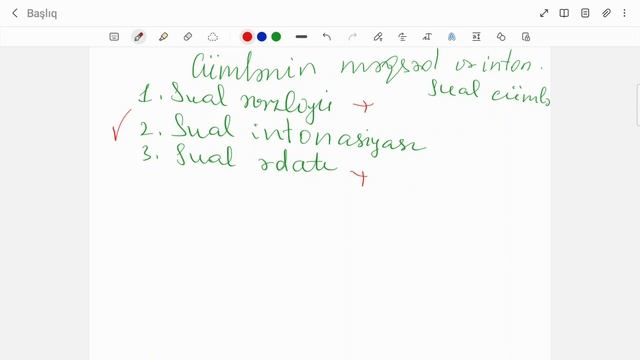 Başlıq
Cümlənin məqsəd və inton.
Sual cümlə
1. Sual əvəzliyi +
✓ 2. Sual intonasiyası
3. Sual ədatı +